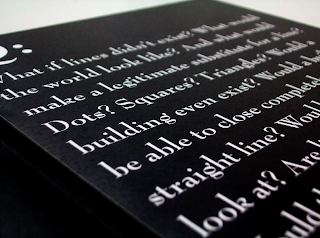 Q:
What if lines didn't exist? What would
the world look like? And what would
make a legitimate substitute for a line?
Dots? Squares? Triangles? Would a
building even exist? Would a
be able to close completel
straight line? Would
look at? Are
Would